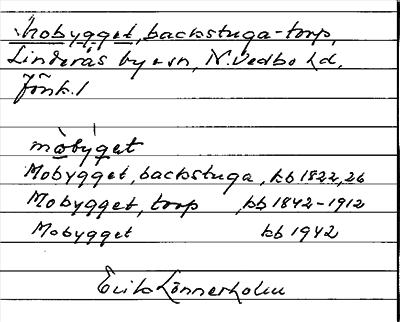 Mobygget, backstuga-torp,
Linderås by o sn, N. Vedbo hd,
Jönk. l
mòbýgət
Mobygget, backstuga, kb 1822, 26
Mobygget, torp kb 1842-1912
Mobygget kb 1942
Erik Lönnerholm